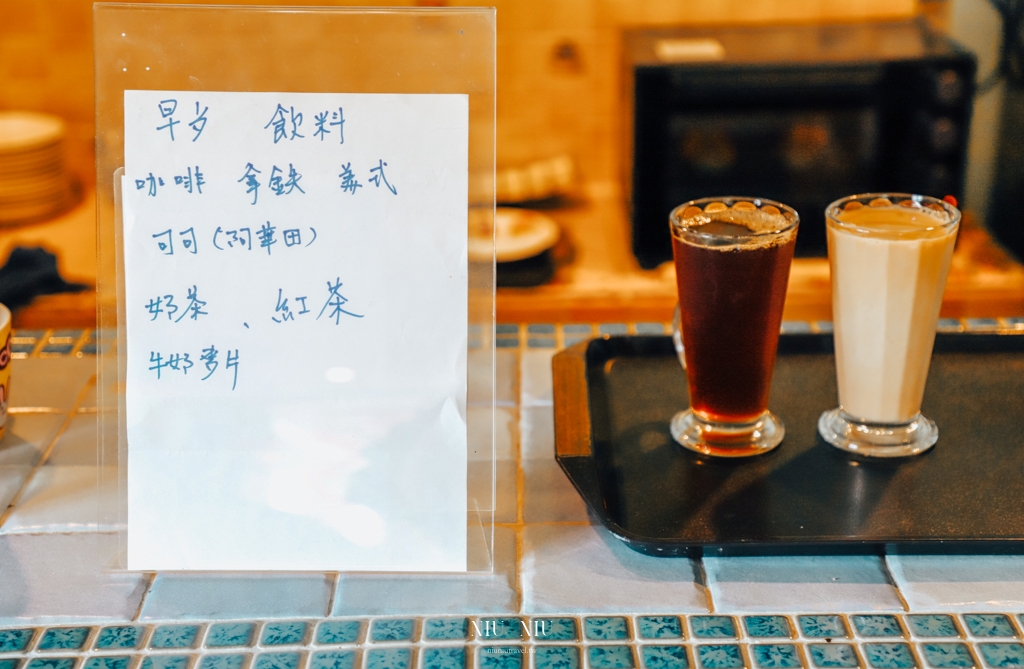 早歺 飲料
咖啡 拿鉄 美式
可可(阿華田)
奶茶、紅茶
牛奶麥片
NIU NIU
niuniutravel.tw